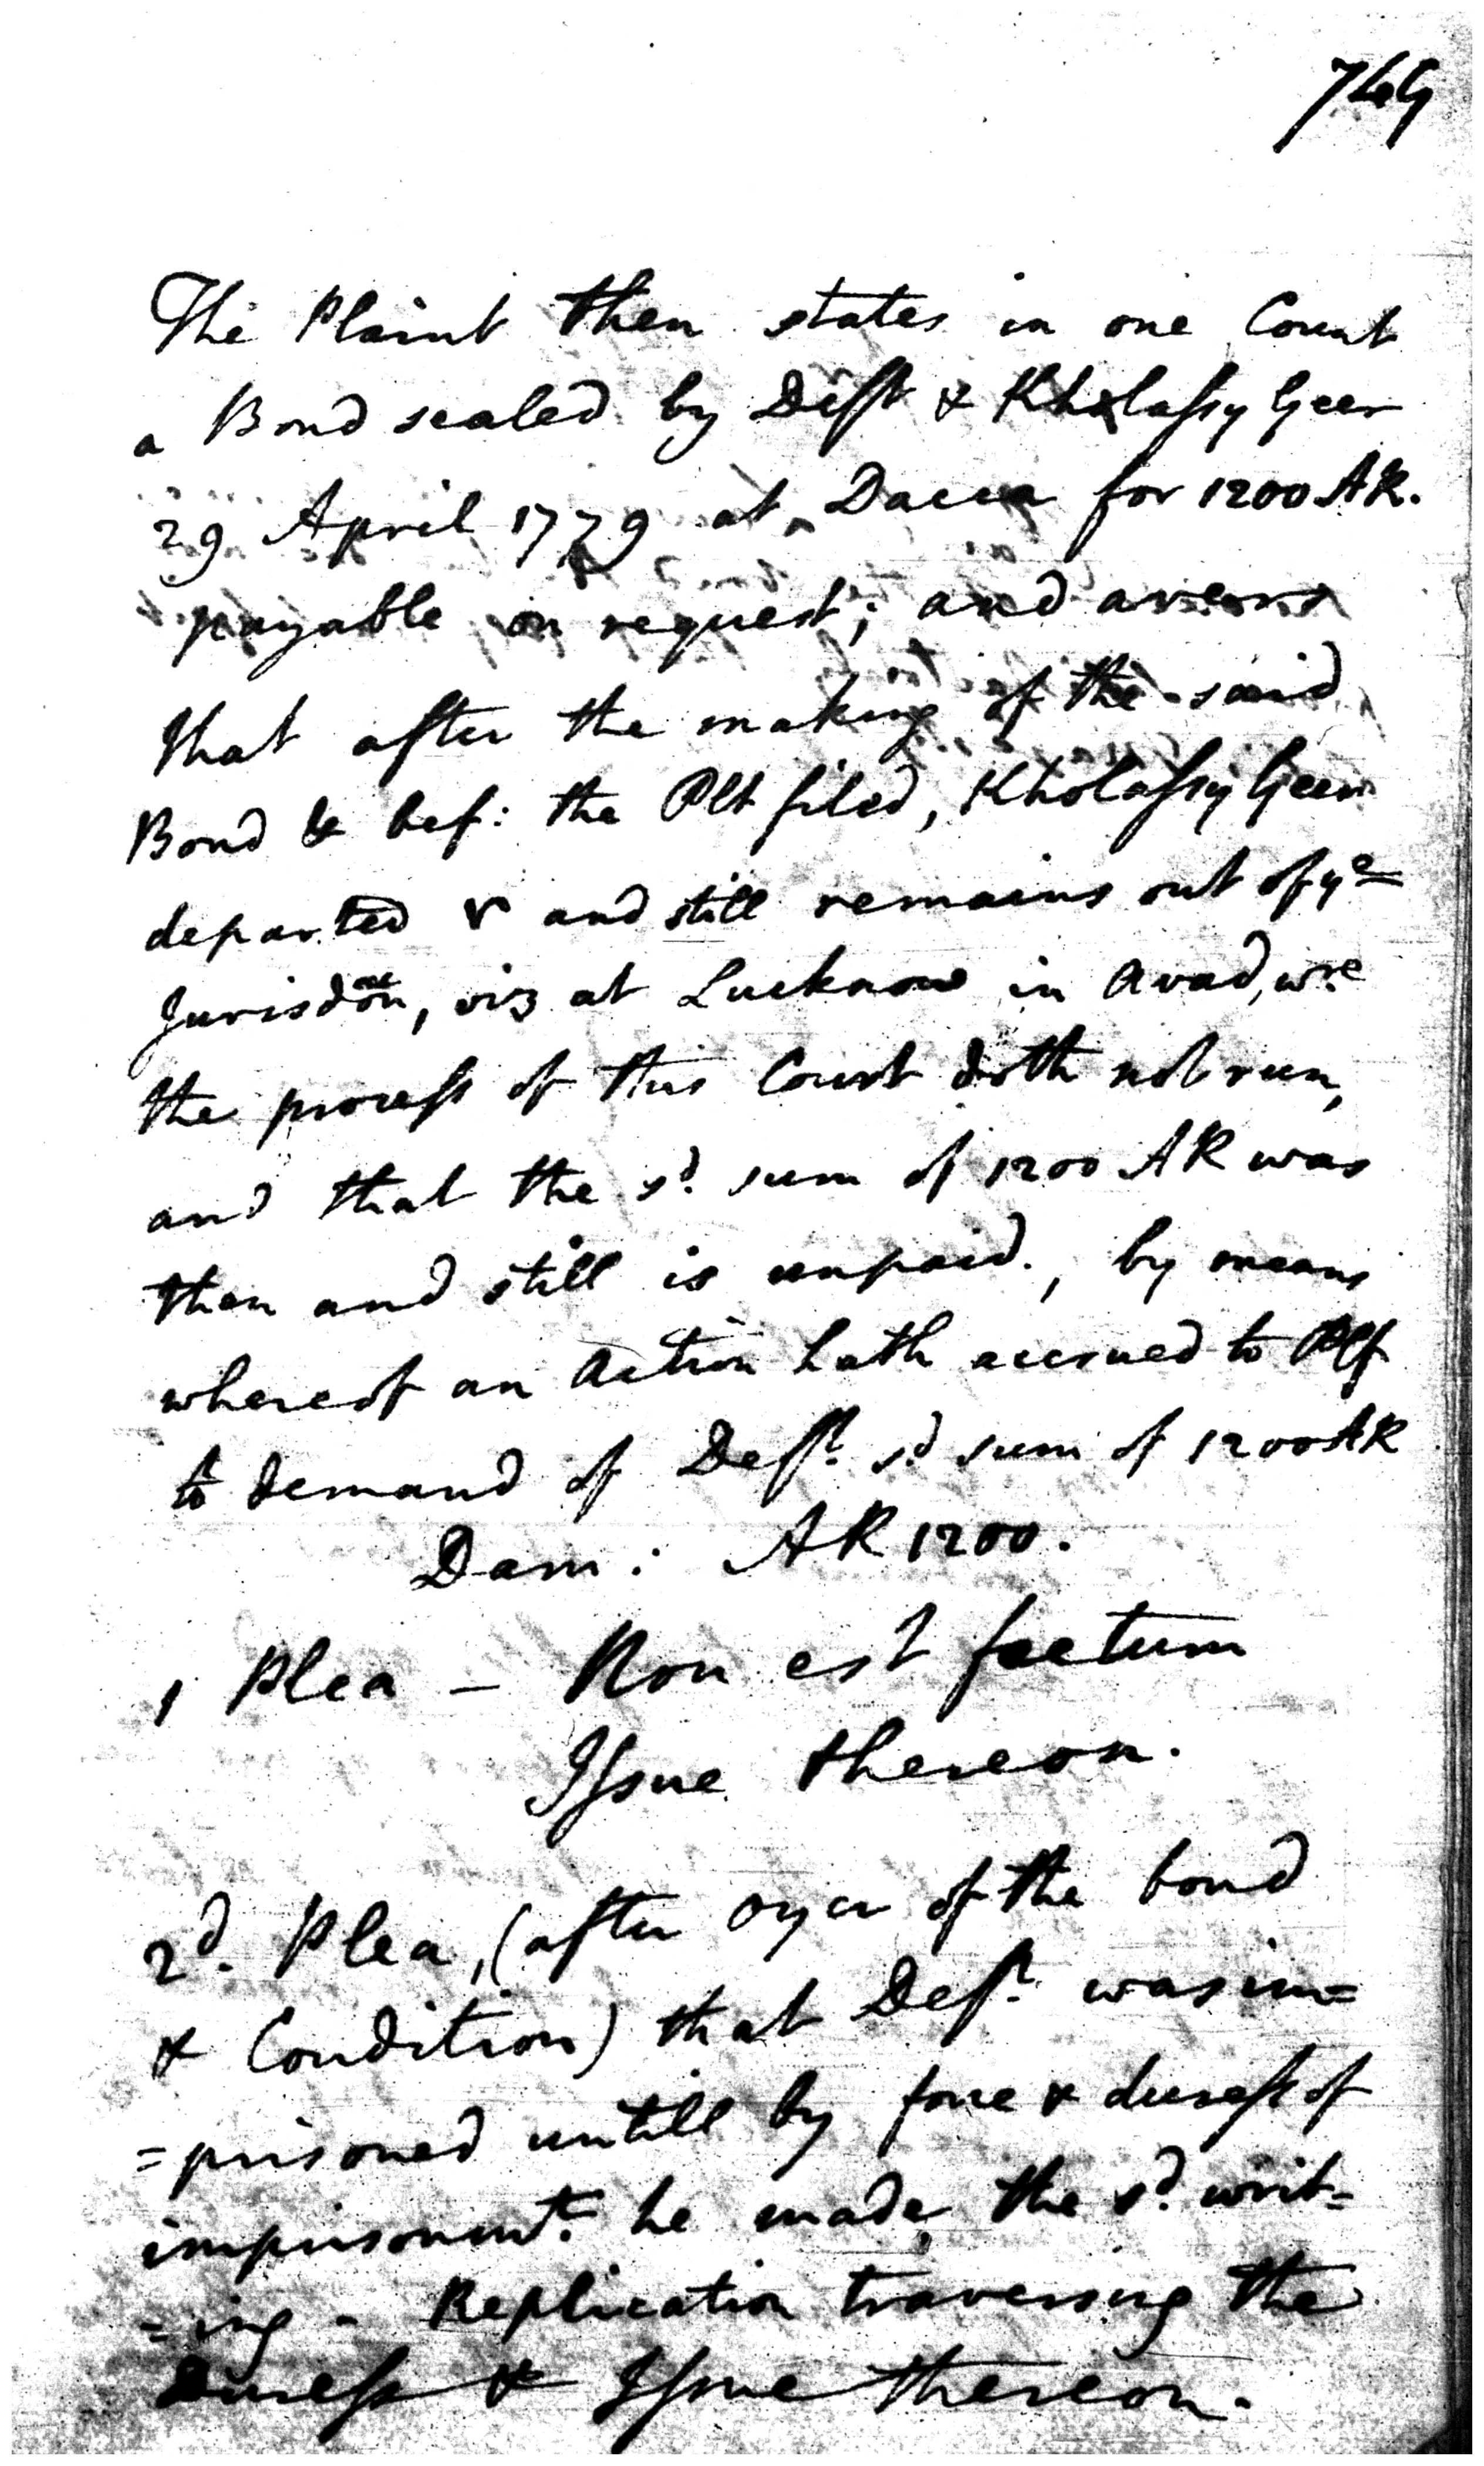 749
The Plaint then states in one Count
a Bond sealed by Deft & Kholassy Geer
29 April 1779 at Dacca for 1200 AR.
payable on request; and avers
that after the making of the said
Bond & bef: the Plt filed, Kholassy Geer
departed & and still remains out of ye
Jurisdon, viz at Lucknow in Avad, wre
the process of this Court doth not run,
and that the sd. sum of 1200 AR was
then and still is unpaid., by means
whereof an Action hath accrued to Plf
to demand of Deft. sd sum of 1200 AR
Dam: AR 1200.
1 Plea – Non est factum
Issue thereon.
2d. Plea, (after oyer of the bond
& Condition) that Deft. was im=
=prisoned untill by force & duress of
imprisonmt. he made the sd. writ=
=ing - Replication traversing the
Duress & Issue thereon.